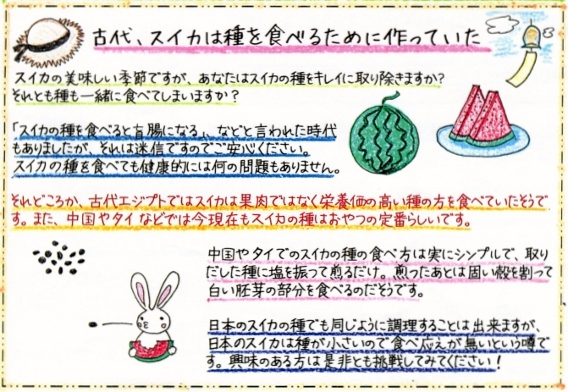 古代、スイカは種を食べるために作っていた
スイカの美味しい季節ですが、あなたはスイカの種をキレイに取り除きますか?
それとも種も一緒に食べてしまいますか?
「スイカの種を食べると盲腸になる」、などと言われた時代
もありましたが、それは迷信ですのでご安心ください。
スイカの種を食べても健康的には何の問題もありません。
それどころか、古代エジプトではスイカは果肉ではなく栄養価の高い種の方を食べていたそうで
す。また、中国やタイなどでは今現在もスイカの種はおやつの定番らしいです。
中国やタイでのスイカの種の食べ方は実にシンプルで、取り
だした種に塩を振って煎るだけ。煎ったあとは固い殻を割って
白い胚芽の部分を食べるのだそうです。
日本のスイカの種でも同じように調理することは出来ますが、
日本のスイカは種が小さいので食べ応えが無いという噂で
す。興味のある方は是非とも挑戦してみてください!